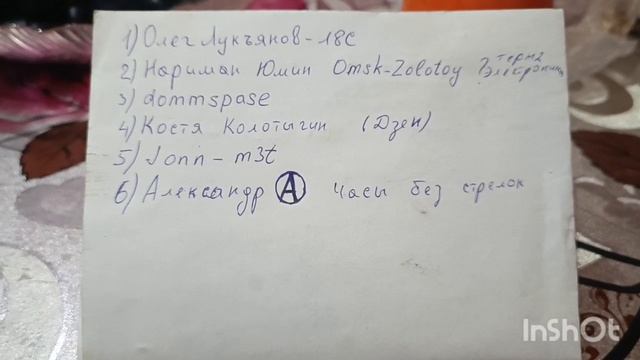 1) Олег Лукъянов - 18С
2) Нариман Юмин Omsk-Zolotoy Электроника
3) dommspase
4) Костя Колотыгин (Дзен)
5) Jonn - m3t
6) Александр А часы без стрелок
InShOt